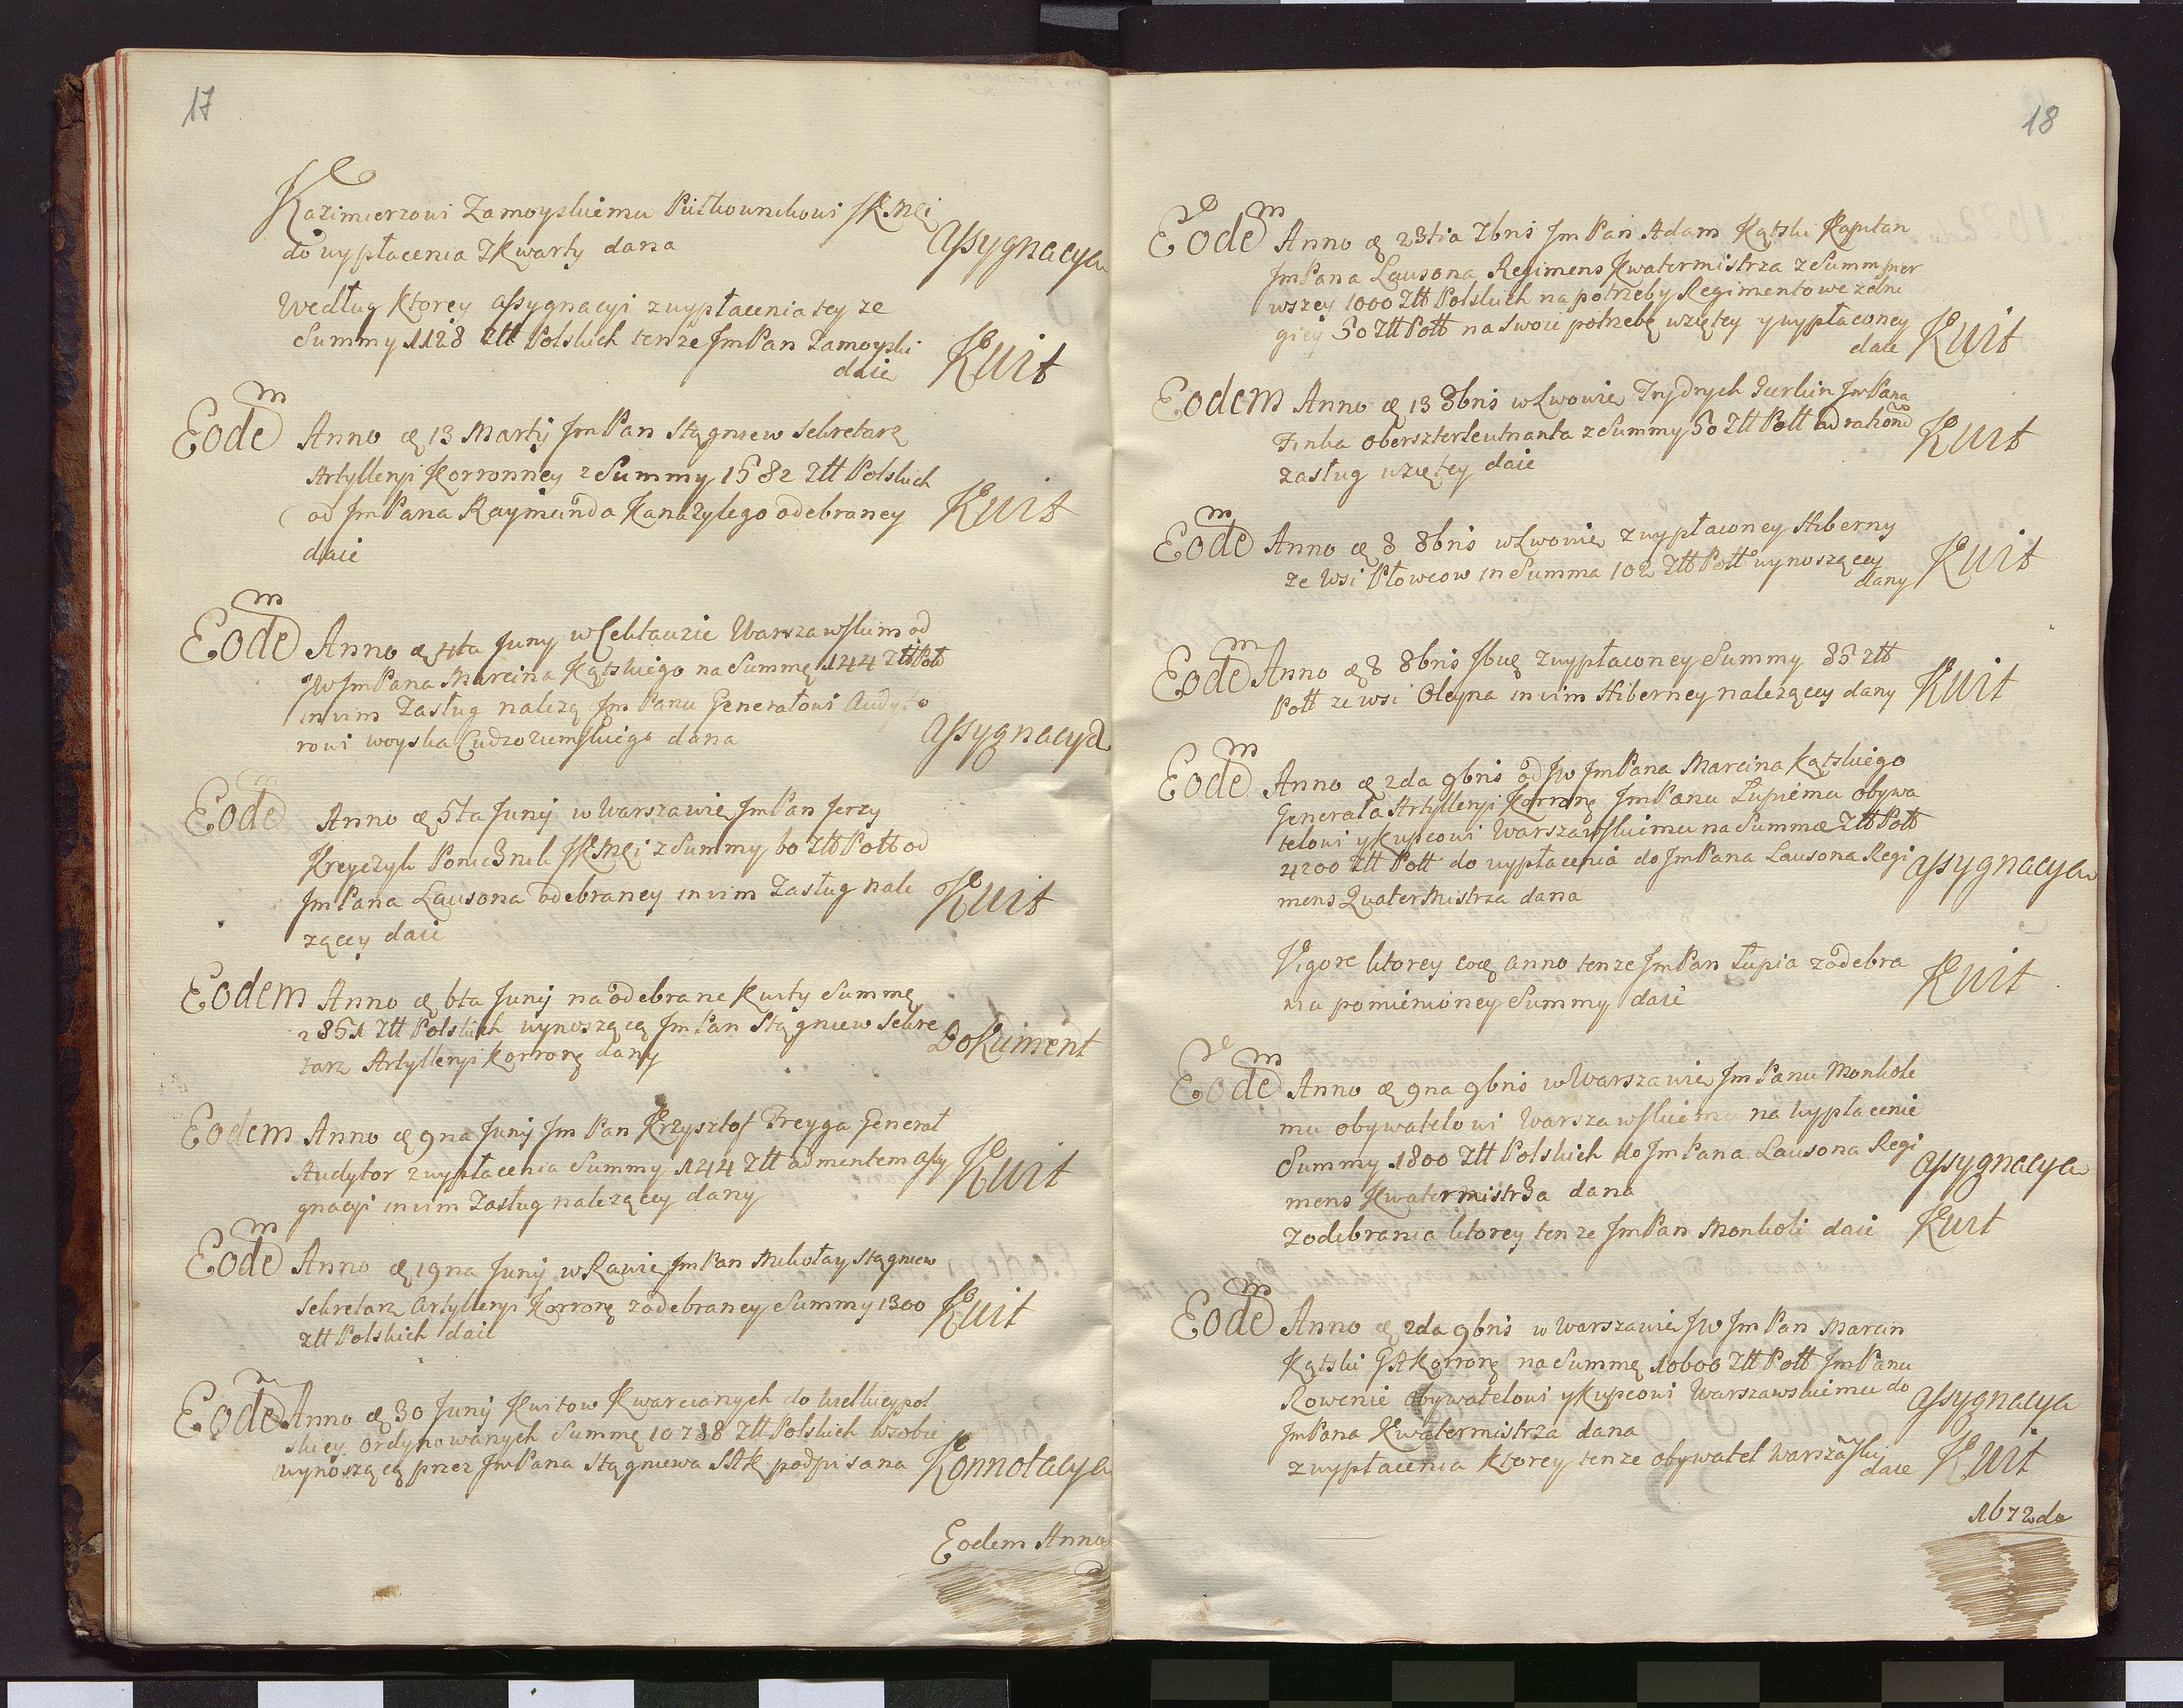 17
Kazimierzowi Zamoyskiemu Pułkownikowi JKMci
do wypłacenia z Kwarty dana
Assygnacya
Według Ktorey assygnacyi z wypłacenia tey ze
Summy 1128 Ztt Polskich tenże Jm Pan Zamoyski
daie
Kwit
Eodem Anno æ 13 Martij Jm Pan Stągniew Sekretarz
Artylleryi Korronney z Summy 1582 Ztt Polskich
od Jm Pana Raymunda Kanazylego odebraney
daie
Kwit
Eodem Anno æ 4ta Juny w Cekhauzie Warszawskim od
JW Jm Pana Marcina Kątskiego na Summę 144 Ztt Poll
in vim Zasług należą Jm Panu Generałowi Audyto
rowi woyska Cudzoziemskiego dana
Assygnacya
Eodem Anno æ 5ta Junij w Warszawie Jm Pan Jerzy
Kreyczyk JKMci z Summy 60 Ztt Poll od
Jm Pana Lausona odebraney in vim Zasług nale
zącey daie
Kwit
Eodem Anno æ 6ta Junij na odebrane Kwity Summę
2851 Ztt Polskich wynoszącą Jm Pan Stągniew Sekre
tarz Artylleryi Korronę dany
Dokument
Eodem Anno æ 9na Junij Jm Pan Krzysztof Freyga Generał
Audytor z wypłacenia Summy 144 Ztt ad mentem assy
gnacyi in vim Zasług należącey dany
Kwit
Eodem Anno æ 19na Junij w Rawie Jm Pan Mikołay Stągniew
Sekretarz Artylleryi Korronę z odebraney Summy 1300
Ztt Polskich daie
Kwit
Eodem Anno æ 30 Junij Kwitow Kwarcianych do Wielkieypol
skiey ordynowanych Summę 10788 Ztt Polskich w sobie
wynoszącą przez Jm Pana Stągniewa SAK podpisana
Konnotacya
Eodem Anno
18
Eodem Anno æ 23tia 7bris Jm Pan Adam Kątski Kapitan
Jm Pana Lausona Regimens Kwatermistrza z Summ pier
wszey 1000 Ztt Polskich na potrzeby Regimentowe z dru
giey 50 Ztt Poll na swoie potrzebę wziętey y wypłaconey
daie
Kwit
Eodem Anno æ 13 8bris w Lwowie Frydrych Jm Pana
Finka Oberszterleutnanta z Summy 50 Ztt Poll ad rationem
zasług wziętey daie
Kwit
Eodem Anno æ 8 8bris w Lwowie z wypłaconey Hiberny
ze Wsi Płowcow in Summa 102 Ztt Poll wynoszącey
dany
Kwit
Eodem Anno æ 8 8bris z wypłaconey Summy 85 Ztt
Poll ze wsi Oleyna in vim Hiberney należącey dany
Kwit
Eodem Anno æ 2da 9bris od JW Jm Pana Marcina Kątskiego
Generała Artylleryi Korronę Jm Panu Łupiemu obywa
telowi y Kupcowi Warszawskiemu na Summæ Ztt Poll
4200 Ztt Poll do wypłacenia do Jm Pana Lausona Regi
mens Quatermistrza dana
Assygnacya
Vigore ktorey eoę anno tenze Jm Pan Łupia z odebra
nia pomienioney Summy daie
Kwit
Eodem Anno æ 9na 9bris w Warszawie Jm Panu Monkole
mu obywatelowi Warszawskiemu na wypłacenie
Summy 1800 Ztt Polskich do Jm Pana Lausona Regi
mens Kwatermistrza dana
Assygnacya
Z odebrania ktorey tenze Jm Pan Monkoli daie
Kwit
Eodem Anno æ 2da 9bris w Warszawie JW Jm Pan Marcin
Kątski GAKorronę na Summę 10600 Ztt Poll Jm Panu
Rowenie Obywatelowi y Kupcowi Warszawskiemu do
Jm Pana Kwatermistrza dana
Assygnacya
z wypłacenia Ktorey tenze obywatel Warszawski
daie
Kwit
1672do